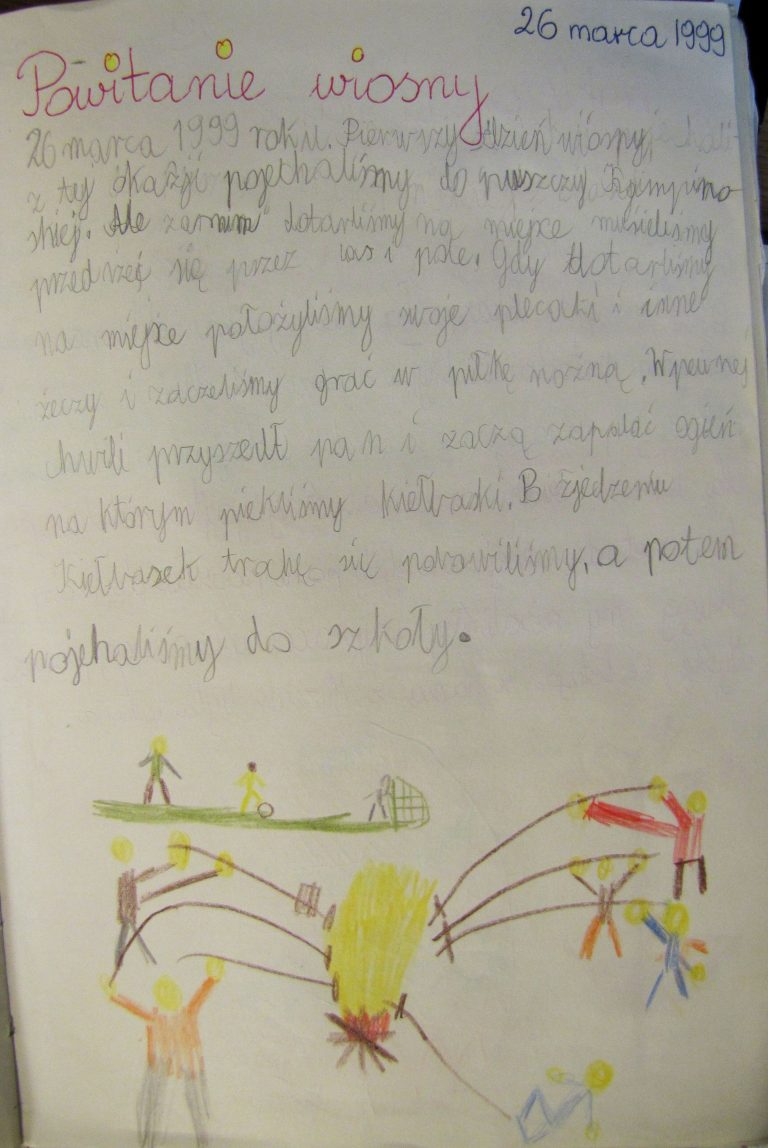 26 marca 1999
Powitanie wiosny
26 marca 1999 roku. Pierwszy dzień wiosny,
z tej okazji pojechaliśmy do puszczy Kampino
skiej. Ale zanim dotarliśmy na miejsce musieliśmy
przedrzeć się przez las i pole. Gdy dotarliśmy
na miejsce położyliśmy swoje plecaki i inne
żeczy i zaczeliśmy grać w piłkę nożną. W pewnej
chwili przyszedł pan i zaczą zapalać ogień
na którym piekliśmy kiełbaski. zjedzeniu
kiełbasek trochę się pobawiliśmy, a potem
pojehaliśmy do szkoły.